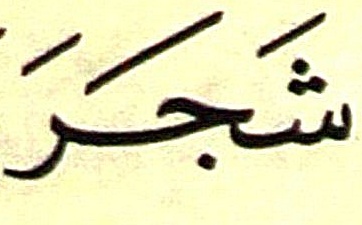 شَجَرَ